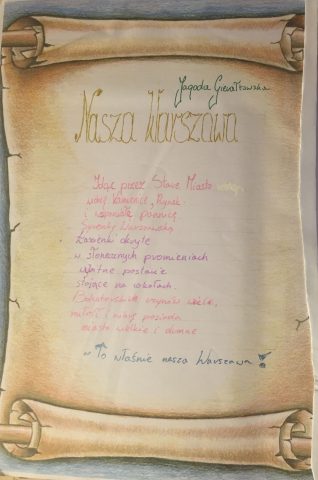 Jagoda Gierałtowska
Nasza Warszawa
Idąc przez Stare Miasto
widzę kamienice, Rynek
i wspaniałą poznaję
Syrenkę Warszawską
Łazienki okryte
w słonecznych promieniach
wybitne postacie
stojące na cokołach.
Bohaterskich czynów wiele,
miłość i wiarę posiada
miasto wielkie i dumne
"To właśnie nasza Warszawa!"